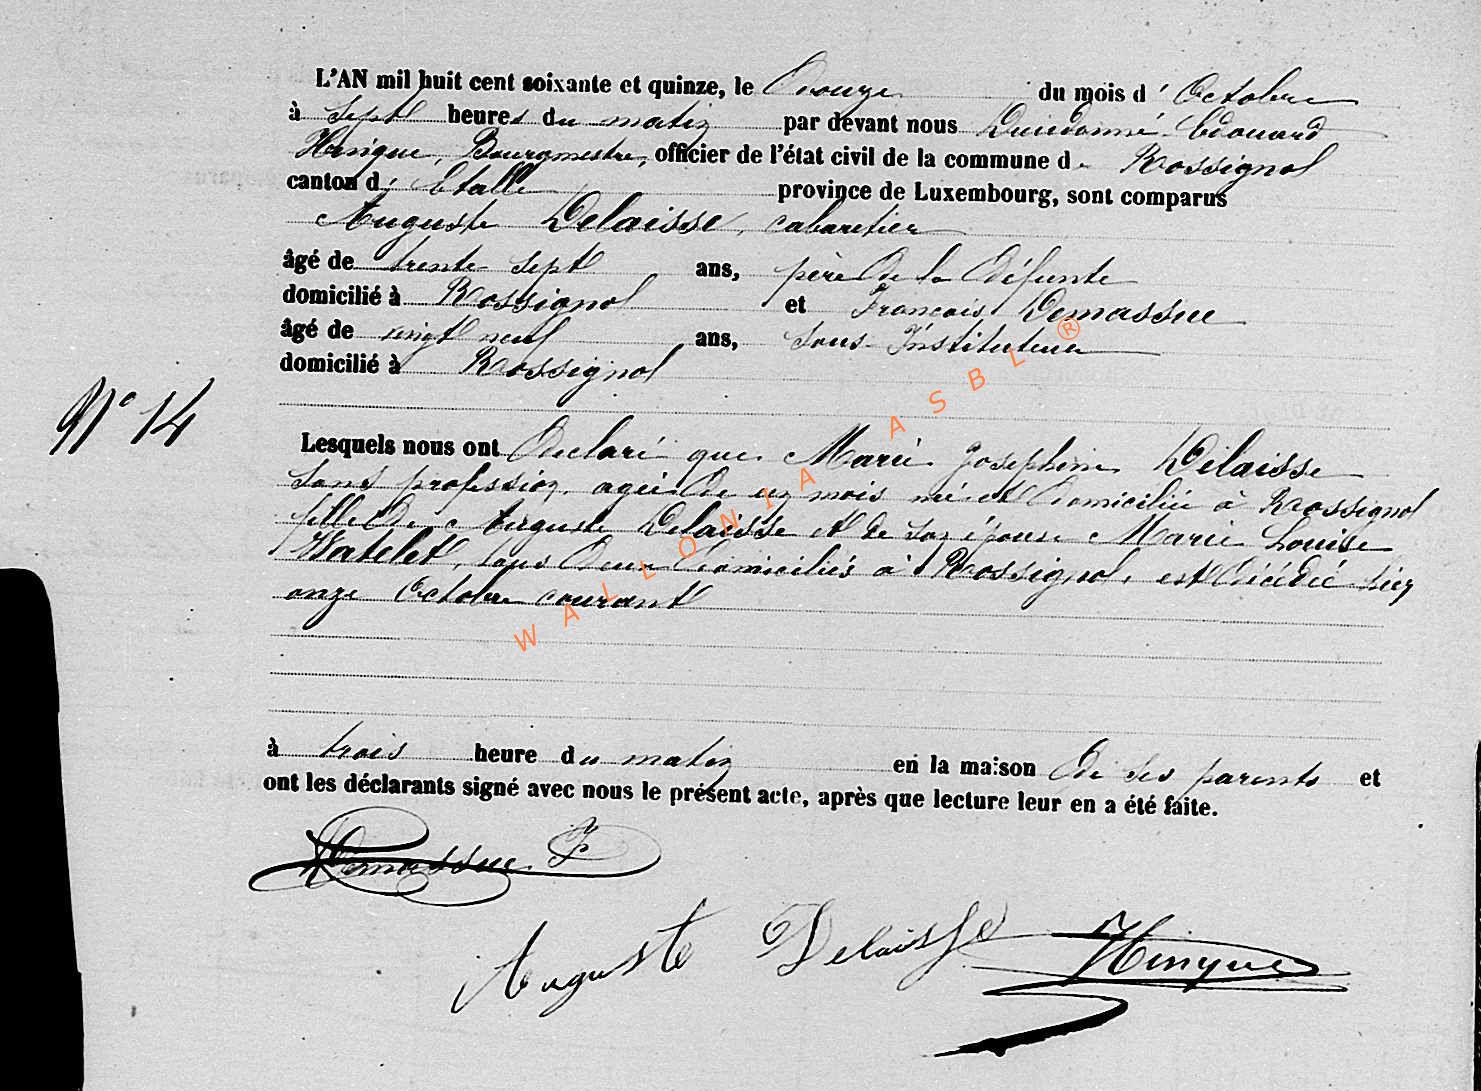 L'AN mil huit cent soixante et quinze, le Douze du mois d'Octobre
à sept heures du matin par devant nous Dieudonné Edouard
Hinque, Bourgmestre, officier de l'état civil de la commune de Rossignol
canton d'Etalle province de Luxembourg, sont comparus
Auguste Delaisse, cabaretier
âgé de trente sept ans, père de la défunte
domicilié à Rossignol et François Demassue
âgé de vingt neuf ans, sous-Instituteur
domicilié à Rossignol
N° 14
Lesquels nous ont déclaré que Marie Josephine Delaisse
sans profession, agée de un mois née et domiciliée à Rossignol
fille de Auguste Delaisse et de son épouse Marie Louise
Watelet, tous deux domiciliés à Rossignol, est décédée hier
onze Octobre courant
à trois heure du matin en la maison de ses parents et
ont les déclarants signé avec nous le présent acte, après que lecture leur en a été faite.
Demassue F
Auguste Delaisse Hinque
WALLONIA ASBL ®